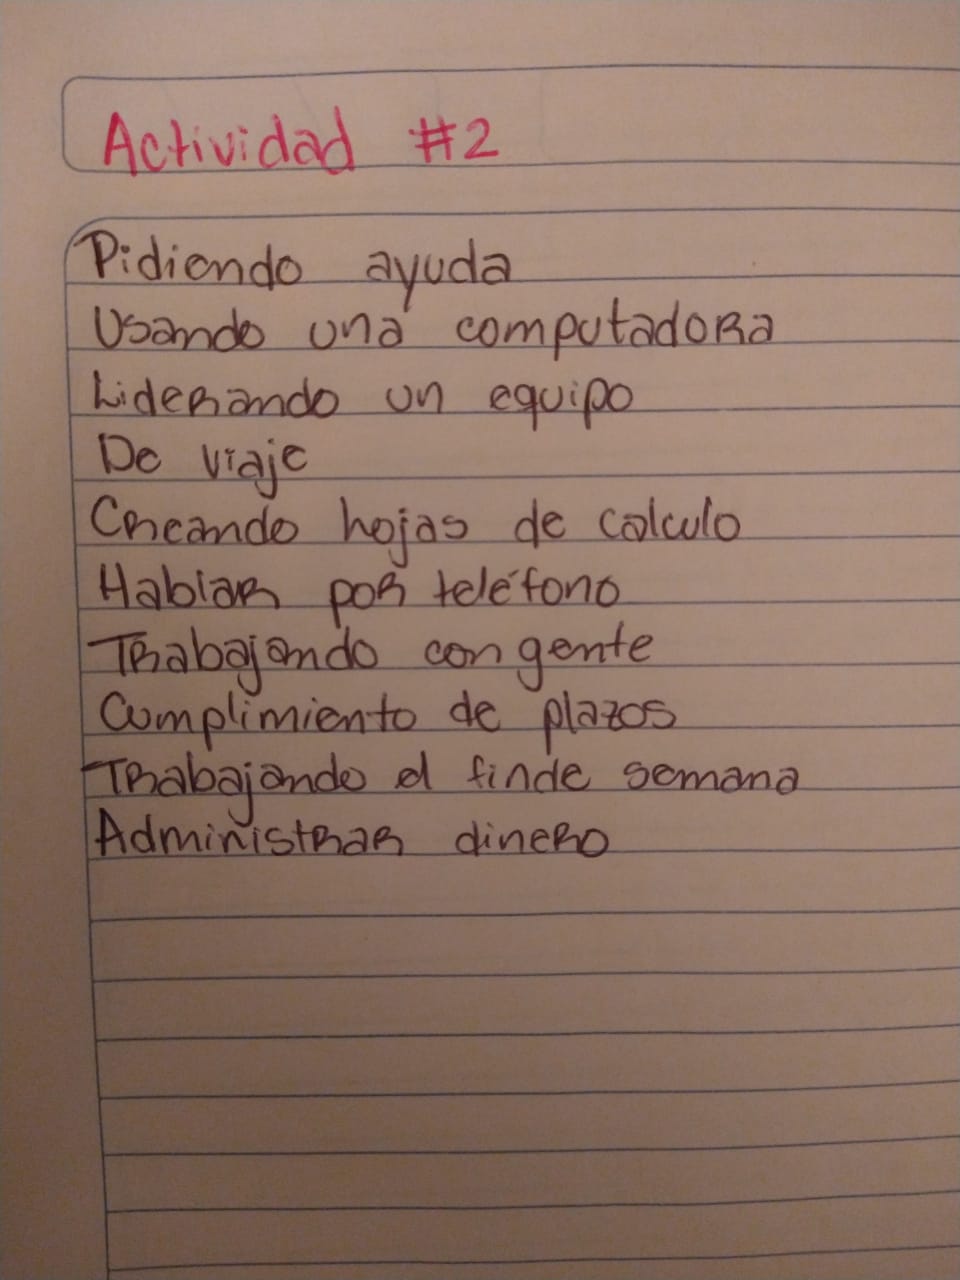 Actividad #2
Pidiendo ayuda
Usando una computadora
Liderando un equipo
De viaje
Creando hojas de calculo
Hablar por teléfono
Trabajando con gente
Cumplimiento de plazos
Trabajando el finde semana
Administrar dinero